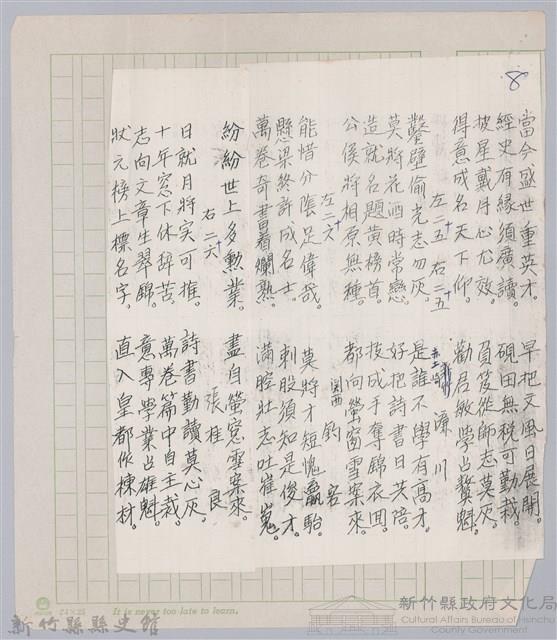 8
當今盛世重英才。早把文風日展開。
經史有緣須廣讀。硯田無稅可勤栽。
披星戴月心尤效。負笈從師志莫灰。
得意成名天下仰。勸君敏學占鰲魁。
左二五 右二五 濂川
鑿壁偷光志勿灰。是誰不學有高才。
莫將花酒時常戀。好把詩書日共陪。
造就名題黃榜首。技成手奪錦衣回。
公侯將相原無種。都向螢窗雪案來。
左二六 關西 鈞客
能惜分陰足偉哉。莫將才短愧羸駘。
懸梁終許成名士。刺股須知是俊才。
萬卷奇書看爛熟。滿腔壯志吐崔嵬。
紛紛世上多勲業。盡自螢窓雪案來。
右二六 張桂良
日就月將实可推。詩書勤讀莫心灰。
十年窓下休辞苦。萬卷篇中自主裁。
志向文章生翠錦。意專學業占雄魁。
狀元榜上標名字。直入皇都作棟材。
24×25 It is never too late to learn.
新竹縣縣史館
新竹縣政府文化局
Cultural Affairs Bureau of Hsinchu
County Government